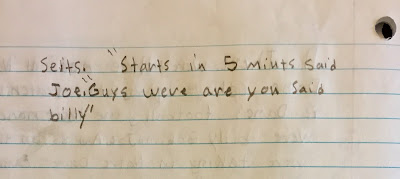 Seits. "Starts in 5 miuts said
Joe."Guys were are you said
billy"